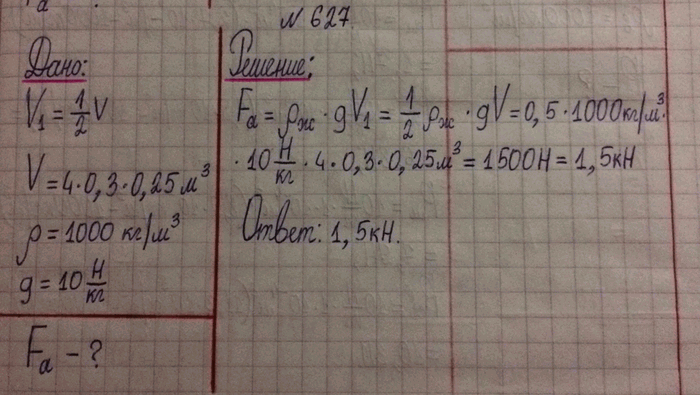 № 627.
Дано:
V₁ = 1/2 V
V = 4·0,3·0,25 м³
ρ = 1000 кг/м³
g = 10 Н/кг
Fₐ – ?
Решение:
Fₐ = ρж · gV₁ = 1/2 ρж · gV = 0,5·1000кг/м³·
· 10 Н/кг · 4·0,3·0,25м³ = 1500Н = 1,5кН
Ответ: 1,5кН.